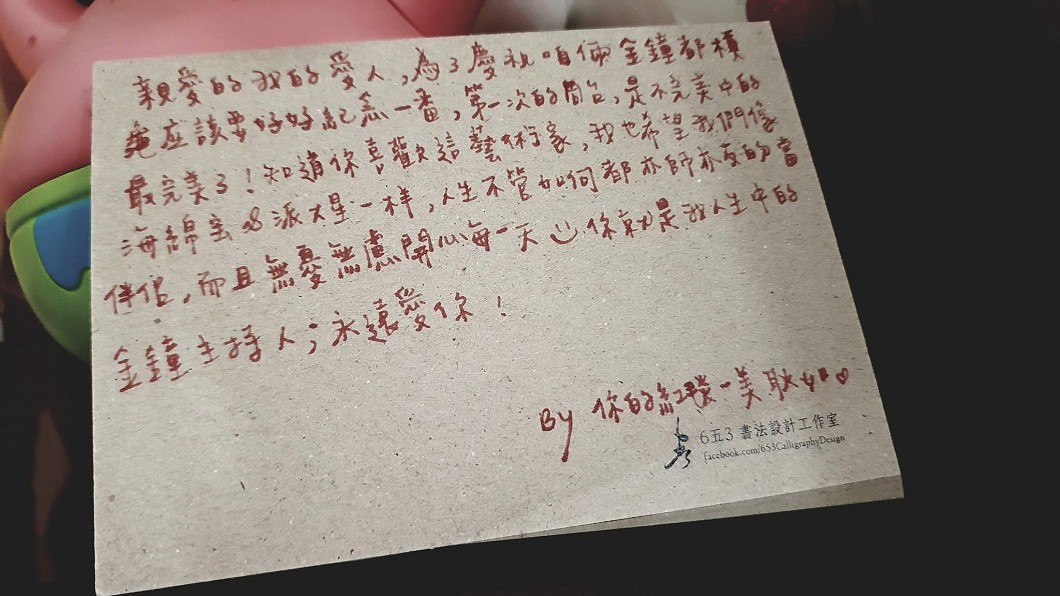 親愛的我的愛人,為了慶祝咱倆金鐘都槓
龜應該要好好紀念一番,第一次的開台,是不完美中的
最完美了!知道你喜歡這藝術家,我也希望我們像
海綿宝&派大星一样,人生不管如何都亦師亦友的當
伴侶,而且無憂無慮開心每一天 你就是我人生中的
金鐘主持人;永遠愛你!
By 你的紅發-美耿如♡
6五3 書法設計工作室
facebook.com/653CalligraphyDesign